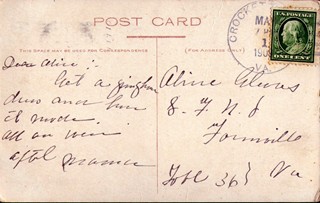 POST CARD
THIS SPACE MAY BE USED FOR CORRESPONDENCE
(FOR ADDRESS ONLY)
CROCKET
MA
7
190
VA.
Dear Alice:
Get a gingham
dress and have
it made.
all are well
aftl mama
Alice
S. F. N. S
Farmville
Va.